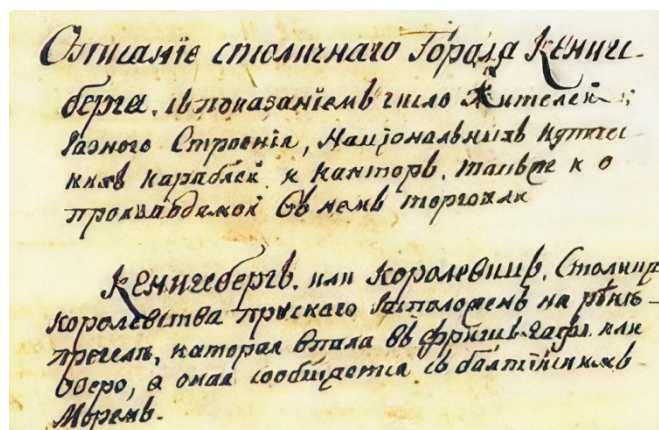 Описаніе столичнаго Города Кениге-
берга. съ показаніемъ число Жителей
разного Строенія, Національнихъ купече-
кихъ караблей. и канторъ, также и о
произвадимой въ немъ торговли
Кенигсбергъ. или Королевицъ, Столица
королевства прускаго расположенъ на рѣкѣ-
прегелѣ, каторая впала въ фришъ-гафъ или
озеро, а оная сообщается съ балтійскимъ
Моремъ.